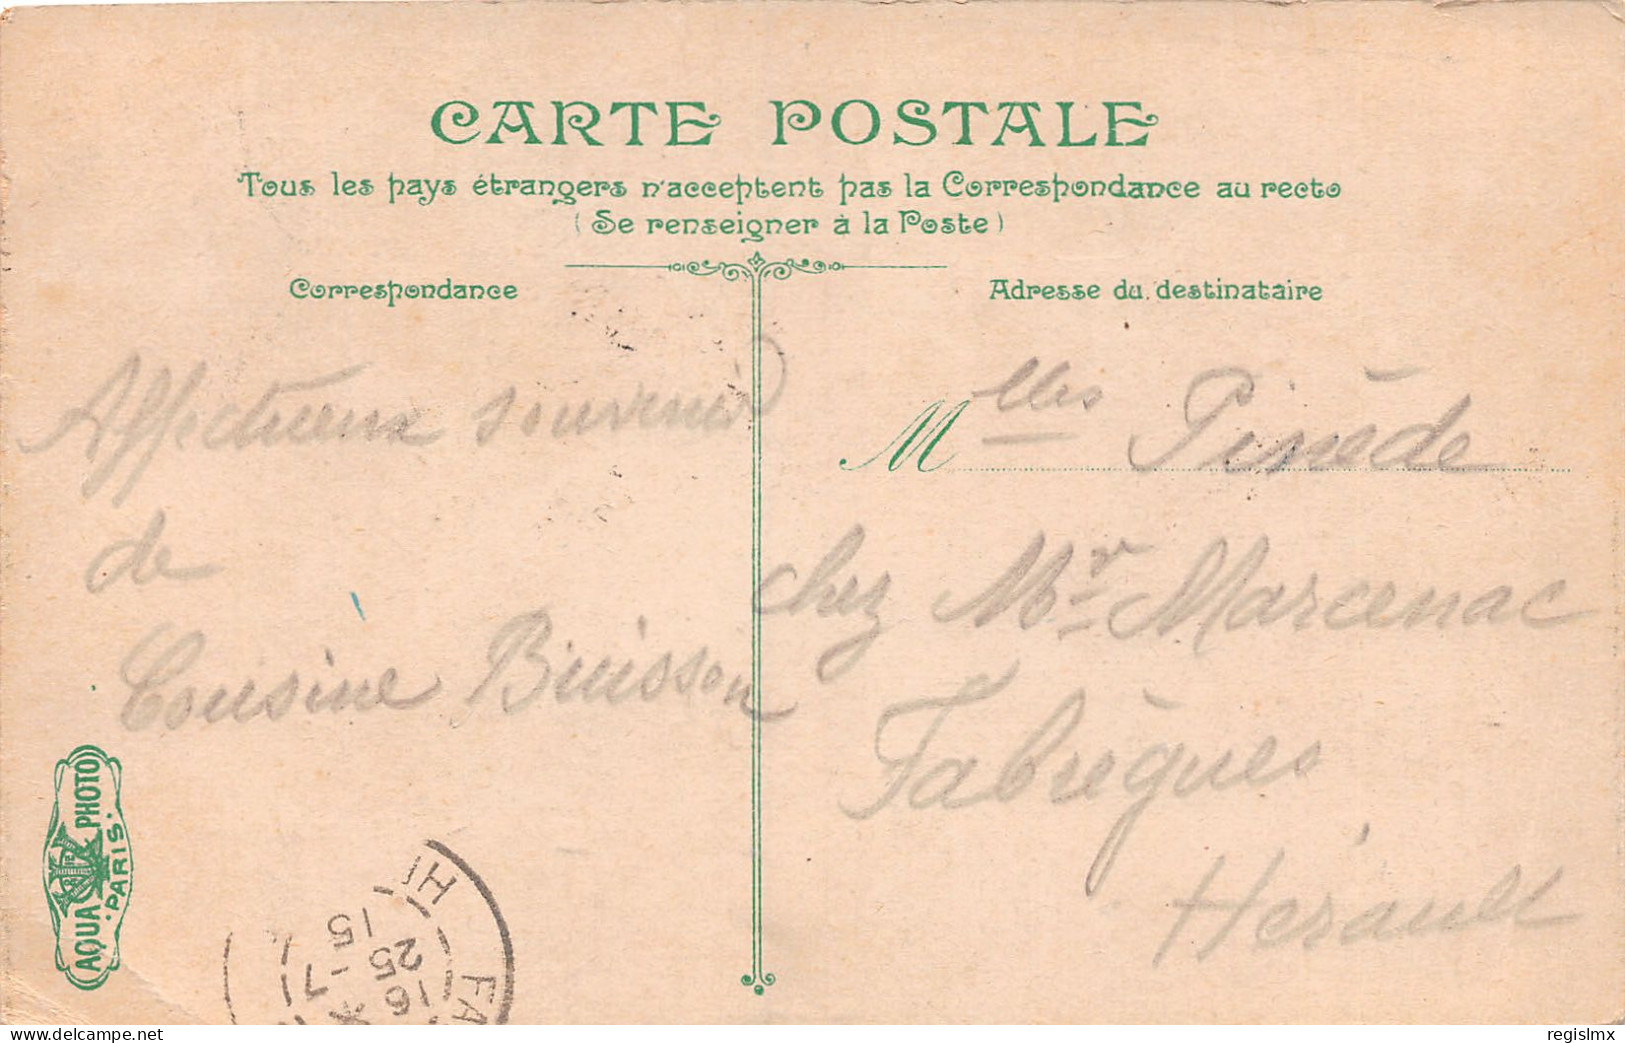 CARTE POSTALE
Tous les pays étrangers n'acceptent pas la Correspondance au recto
(Se renseigner à la Poste)
Correspondance
Adresse du destinataire
Affectueux souvenir
de
Cousine Buisson
Mlles Pinède
chez Mr Marcenac
Fabrègues
Hérault
AQUA PHOTO
PARIS.
16
25-7
15
FA
H
regislmx